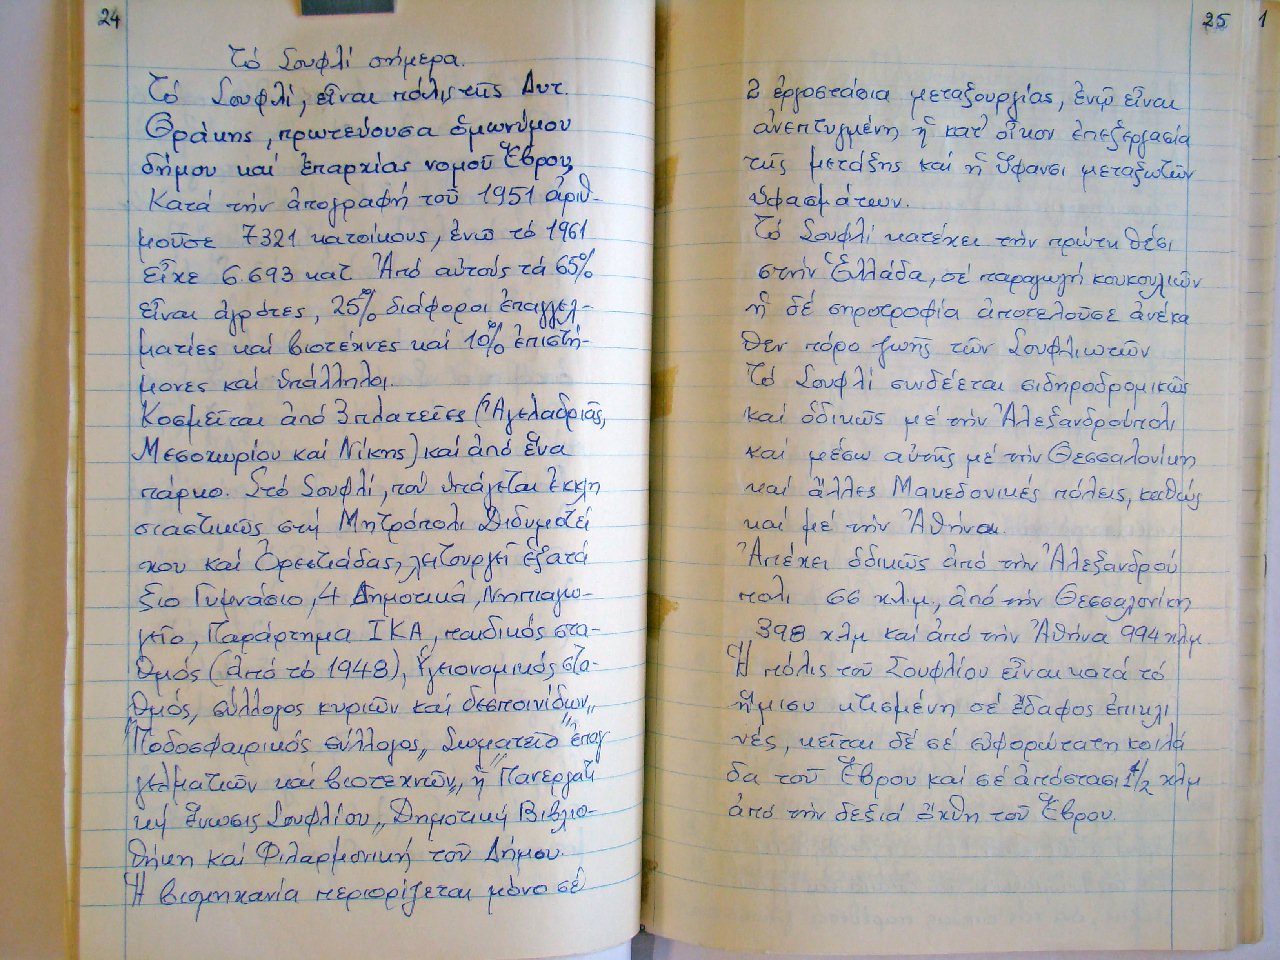 24
Τό Σουφλί σήμερα.
Τό Σουφλί, εἶναι πόλις τῆς Δυτ.
Θράκης, πρωτεύουσα ὁμωνύμου
δήμου καί ἐπαρχίας νομοῦ Ἕβρου,
Κατά τήν ἀπογραφή τοῦ 1951 ἀριθ-
μοῦσε 7321 κατοίκους, ἐνῶ τό 1961
εἶχε 6.693 κατ. Ἀπό αὐτούς τά 65%
εἶναι ἀγρότες, 25% διάφοροι ἐπαγγελ-
ματίες καί βιοτέχνες καί 10% ἐπιστή-
μονες καί ὑπάλληλοι.
Κοσμεῖται ἀπό 3 πλατεῖες (Ἀγελαδριᾶς,
Μεσοχωρίου καί Νίκης) καί ἀπό ἕνα
πάρκο. Στό Σουφλί, πού ὑπάγεται ἐκκλη
σιαστικῶς στή Μητρόπολι Διδυμοτεί
χου καί Ὀρεστιάδας, λειτουργεῖ ἑξατά
ξιο Γυμνάσιο, 4 Δημοτικά, Νηπιαγω-
γεῖο, Παράρτημα ΙΚΑ, παιδικός στα-
θμός (ἀπό τό 1948), Ὑγειονομικός στα-
θμός, σύλλογος κυριῶν καί δεσποινίδων,,
"Ποδοσφαιρικός σύλλογος,, Σωματεῖο "ἐπαγ
γελματιῶν καί βιοτεχνῶν,, ἡ "Πανεργατι
κή Ἕνωσις Σουφλίου,, Δημοτική Βιβλιο-
θήκη καί Φιλαρμονική τοῦ Δήμου.
Ἡ βιομηχανία περιορίζεται μόνο σέ
25
1
2 ἐργοστάσια μεταξουργίας, ἐνῶ εἶναι
ἀνεπτυγμένη ἡ κατ' οἶκον ἐπεξεργασία
τῆς μετάξης καί ἡ ὕφανσι μεταξωτῶν
ὑφασμάτων.
Τό Σουφλί κατέχει τήν πρώτη θέσι
στήν Ἑλλάδα, σέ παραγωγή κουκουλιῶν
ἡ δέ σηροτροφία ἀποτελοῦσε ἀνέκα
θεν πόρο ζωῆς τῶν Σουφλιωτῶν
Τό Σουφλί συνδέεται σιδηροδρομικῶς
καί ὁδικῶς μέ τήν Ἀλεξανδρούπολι
καί μέσω αὐτῆς μέ τήν Θεσσαλονίκη
καί ἄλλες Μακεδονικές πόλεις, καθώς
καί μέ τήν Ἀθήνα.
Ἀπέχει ὁδικῶς ἀπό τήν Ἀλεξανδρού
πολι 66 χλμ, ἀπό τήν Θεσσαλονίκη
398 χλμ καί ἀπό τήν Ἀθήνα 994 χλμ
Ἡ πόλις τοῦ Σουφλίου εἶναι κατά τό
ἥμισυ κτισμένη σέ ἔδαφος ἐπικλι
νές, κεῖται δέ σέ εὐφορώτατη κοιλά
δα τοῦ Ἕβρου καί σέ ἀπόστασι 1 1/2 χλμ
ἀπό τήν δεξιά ὄχθη τοῦ Ἕβρου.